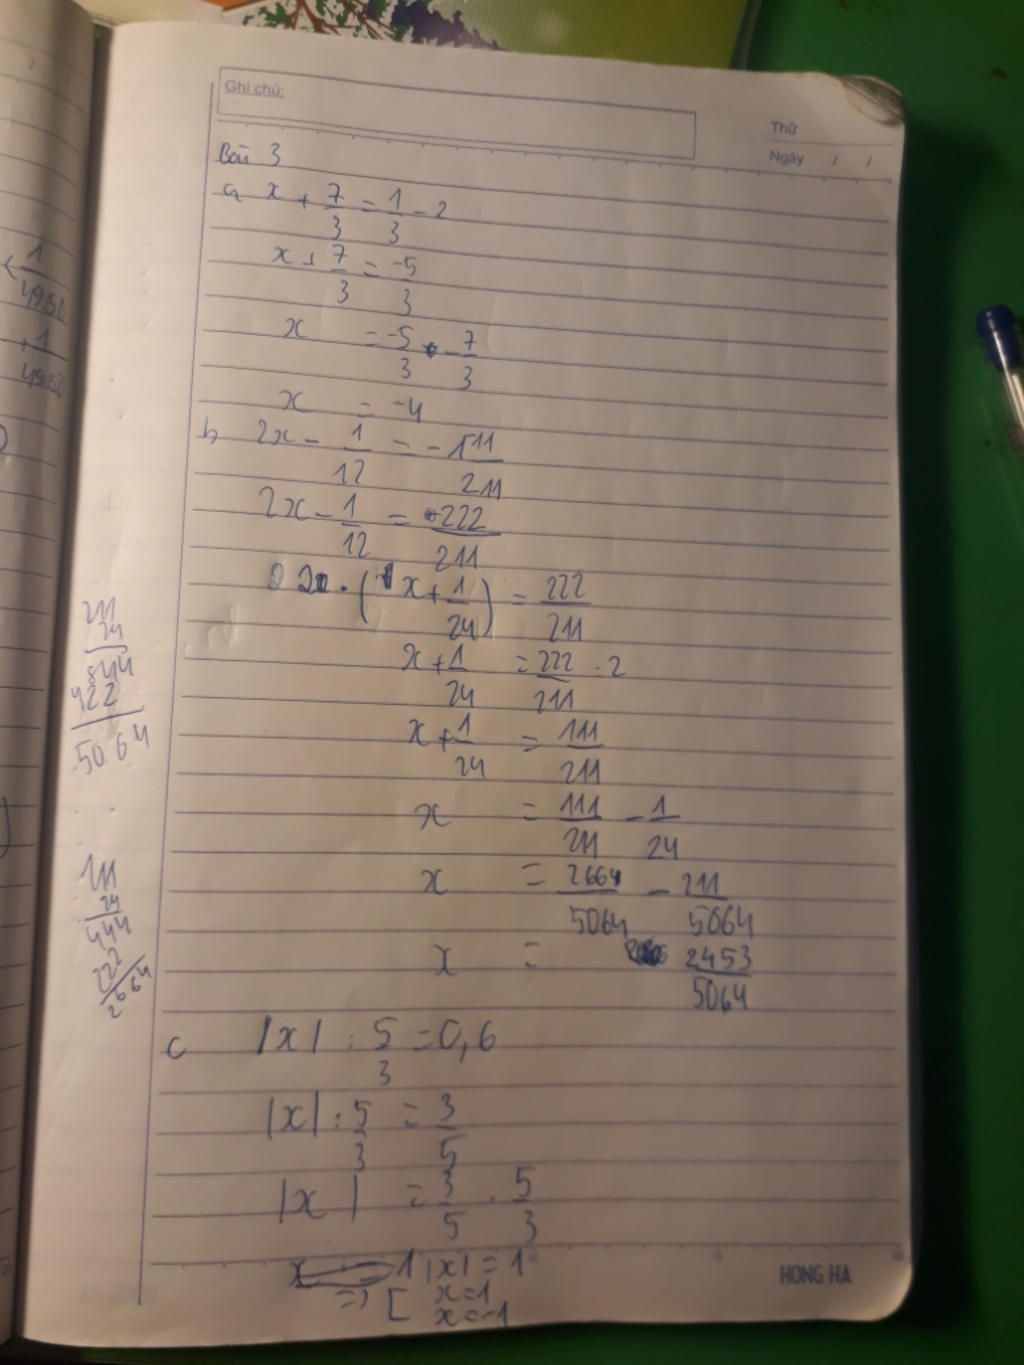 Ghi chú:
Thứ
Ngày / /
Bài 3
a, x + 7/3 = 1/3 - 2
x + 7/3 = -5/3
x = -5/3 - 7/3
x = -4
b 2x - 1/12 = -111/211
2x - 1/12 = 222/211
2 . (x + 1/24) = 222/211
x + 1/24 = 222/211 : 2
x + 1/24 = 111/211
x = 111/211 - 1/24
x = 2664/5064 - 211/5064
x = 2453/5064
c |x| : 5/3 = 0,6
|x| : 5/3 = 3/5
|x| = 3/5 . 5/3
|x| = 1
=> [ x = 1
x = -1
HONG HA
1
49.50
+ 1
211
24
844
422
5064
111
24
444
222
2664